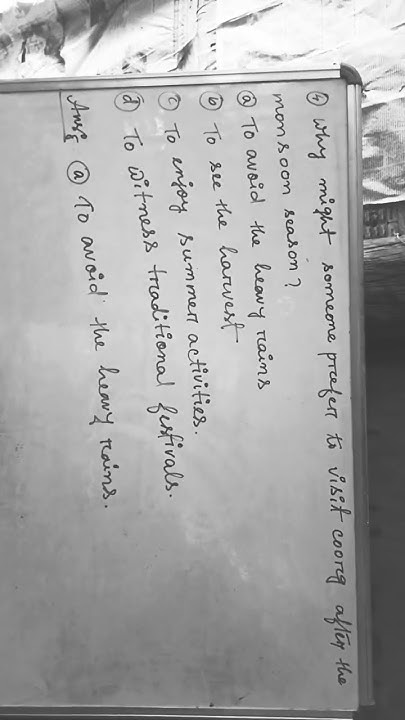 ④ Why might someone prefer to visit coorg after the
monsoon season?
ⓐ To avoid the heavy rains
ⓑ To see the harvest
ⓒ To enjoy summer activities.
ⓓ To witness traditional festivals.
Ans: ⓐ To avoid the heavy rains.